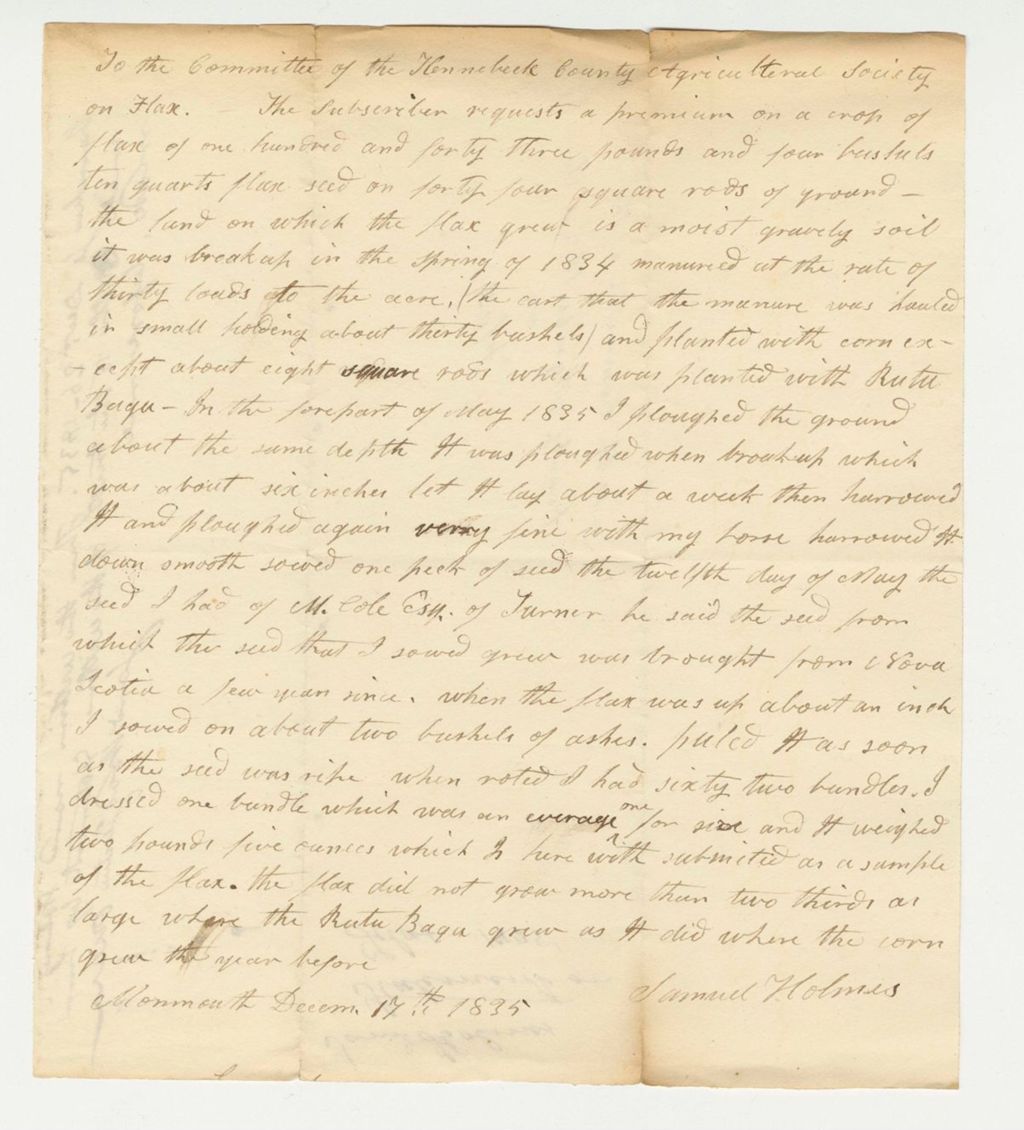 To the Committee of the Kennebeck County Agricultural Society
on Flax. The Subscriber requests a premium on a crop of
flax of one hundred and forty three pounds and four bushels
ten quarts flax seed on forty four square rods of ground –
the land on which the flax grew is a moist gravely soil
it was break up in the spring of 1834 manureed at the rate of
thirty loads to the acre. (the cart that the manure was hauled
in small holding about thirty bushels) and planted with corn ex-
-cept about eight square rods which was planted with Ruta
Baga – In the forepart of May 1835 I ploughed the ground
about the same depth It was ploughed when broak up which
was about six inches let It lay about a week then harrowed
It and ploughed again verry fine with my horse harrowed It
down smooth sowed one peck of seed the twelfth day of May the
seed I had of M. Cole Esq. of Turner he said the seed from
which the seed that I sowed grew was brought from Nova
Scotia a few years since. when the flax was up about an inch
I sowed on about two bushels of ashes. puled It as soon
as the seed was ripe when roted I had sixty two bundles. I
dressed one bundle which was an everage one for size and It weighed
two pounds five ounces which Is here with submited as a sample
of the flax. the flax did not grow more than two thirds as
large where the Ruta Baga grew as It did where the corn
grew the year before
Monmouth Decem. 17th 1835 Samuel Holmes